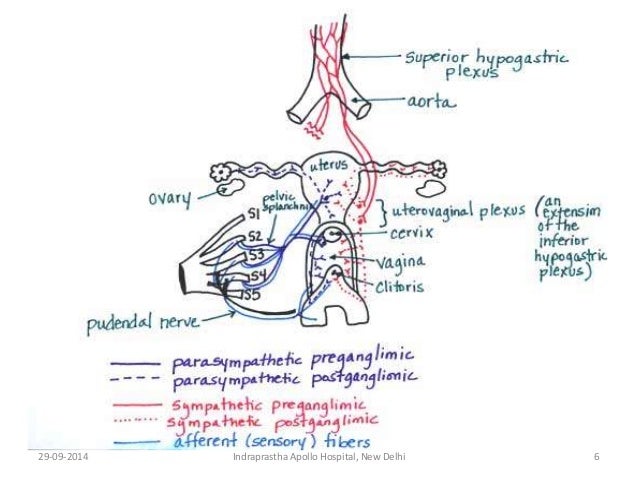 superior hypogastric
plexus
aorta
uterus
ovary
pelvic
splanchnic
S1
S2
S3
S4
S5
uterovaginal plexus (an
extension
of the
inferior
hypogastric
plexus)
cervix
vagina
clitoris
pudendal nerve
parasympathetic preganglimic
parasympathetic postganglionic
sympathetic preganglimic
sympathetic postganglimic
afferent (sensory) fibers
29-09-2014
Indraprastha Apollo Hospital, New Delhi
6